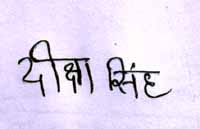 दीक्षा सिंह